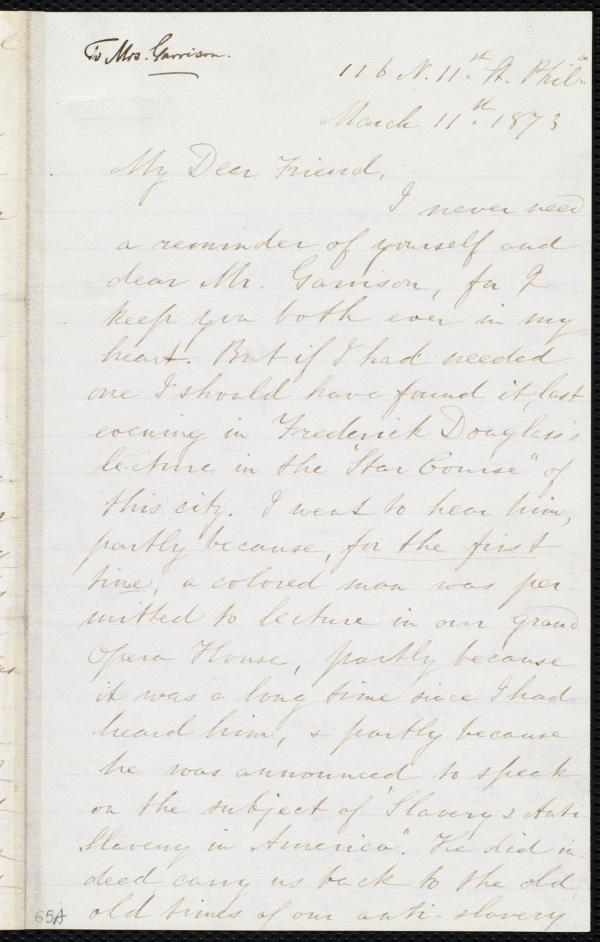 To Mrs. Garrison.
116 N. 11th St. Phila
March 11th 1873
My Dear Friend,
I never need
a reminder of yourself and
dear Mr. Garrison, for I
keep you both ever in my
heart. But if I had needed
one I should have found it, last
evening in Frederick Douglass's
lecture in the "Star Course" of
this city. I went to hear him,
partly because, for the first
time, a colored man was per-
mitted to lecture in our grand
Opera House, partly because
it was a long time since I had
heard him, & partly because
he was announced to speak
on the subject of "Slavery & Anti-
Slavery in America". He did in-
deed carry us back to the old,
old times of our anti-slavery
65A